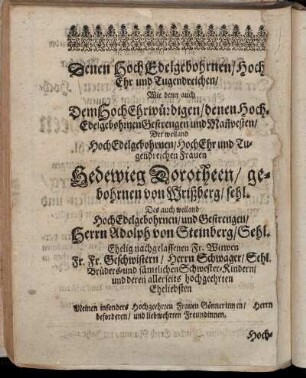 Denen Hoch Edelgebohrnen/ Hoch
Ehr und Tugendreichen/
Wie denn auch
Dem Hoch Ehrwürdigen/ denen Hoch-
Edelgebohrnen Gestrengen und Manvesten/
Der weiland
HochEdelgebohrnen/ HochEhr und Tu-
gendreichen Frauen
Hedewieg Dorotheen/ ge-
bohrnen von Wrißberg/ sehl.
Des auch weiland
HochEdelgebohrnen/ und Gestrengen/
Herrn Adolph von Steinberg/ Sehl.
Ehelig nachgelassenen Fr. Witwen
Fr. Fr. Geschwistern/ Herrn Schwager/ Sehl.
Brüders und sämtlichen Schwester-Kindern/
und deren allerseits hochgeehrten
Eheliebsten
Meinen insonders Hochgeehrten Frauen Gönnerinnen/ Herrn
beforderen/ und liebwehrten Freundinnen.
Hoch-